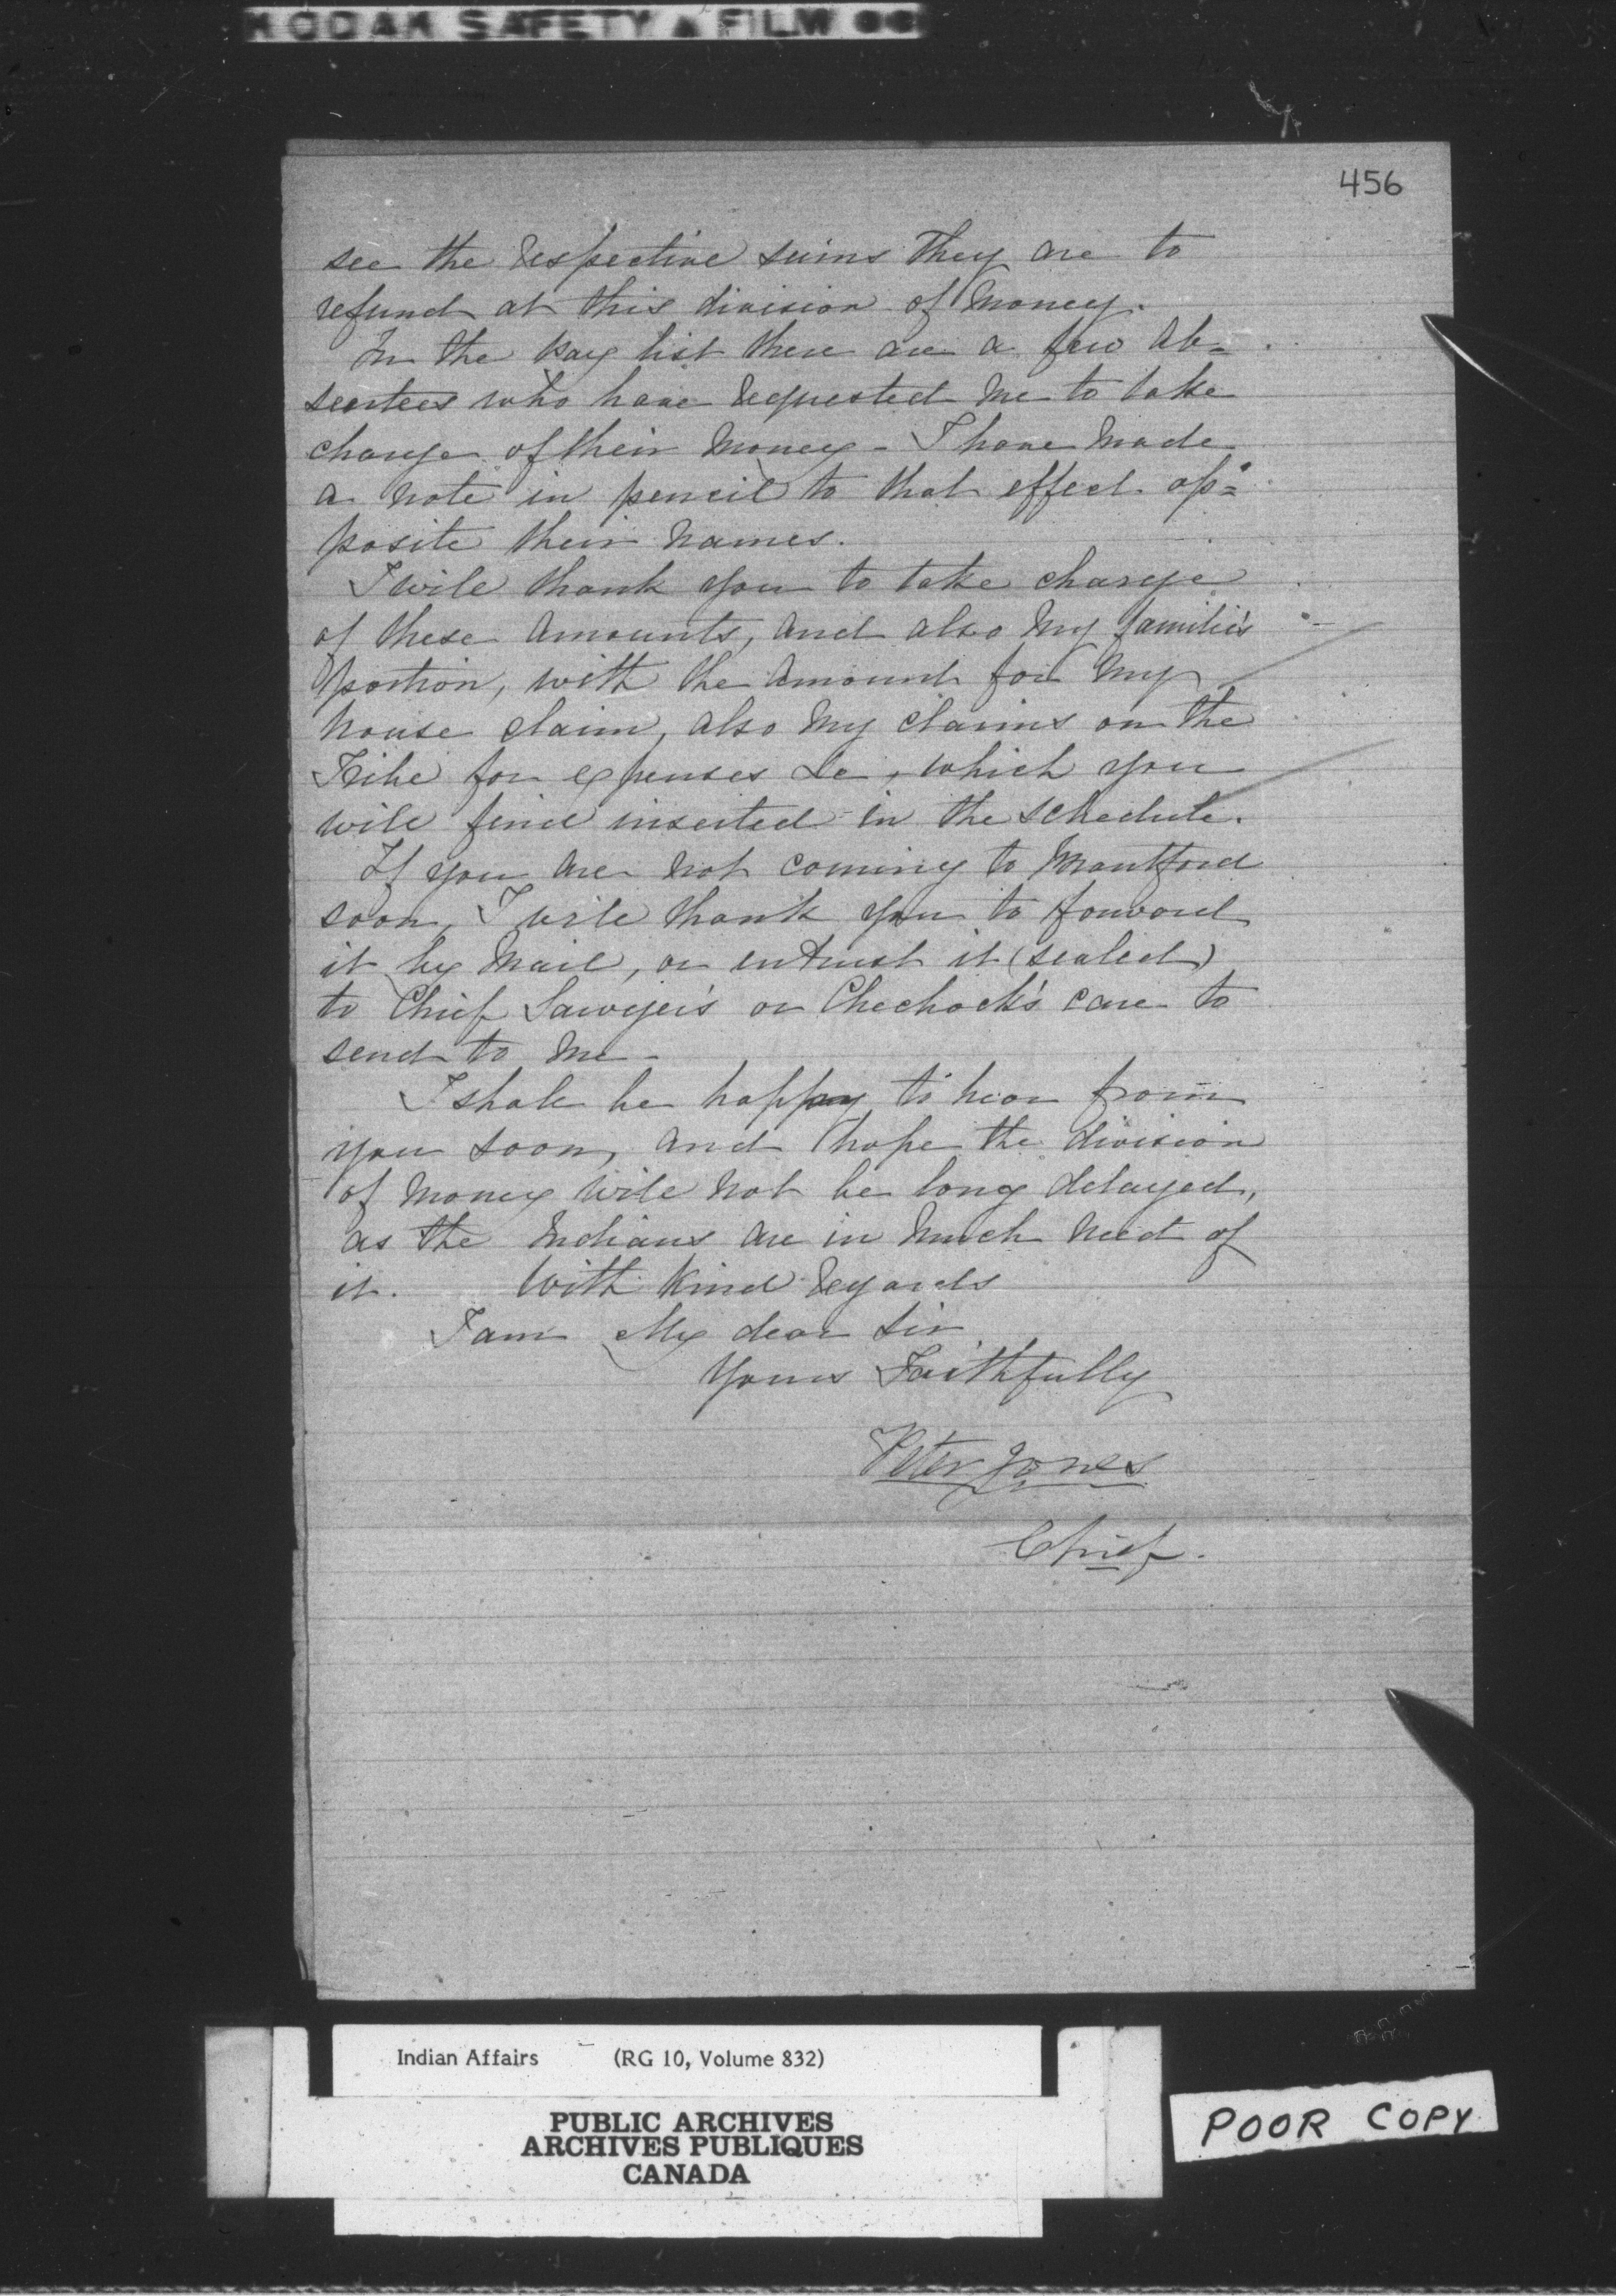 KODAK SAFETY FILM
456
see the respective sums they are to
refund at this division of money.
In the pay list there are a few ab=
sentees who have requested me to take
charge of their money - I have made
a note in pencil to that effect op=
posite their names.
I will thank you to take charge
of these amounts, and also my familie's
portion, with the amount for my
house claim, also my claims on the
Tribe for expenses &c, which you
will find inserted in the schedule.
If you are not coming to Brantford
soon, I will thank you to forward
it by mail, or entrust it (sealed)
to Chief Sawyer's or Chechock's care to
send to me -
I shall be happy to hear from
you soon, and hope the division
of money will not be long delayed,
as the Indians are in much need of
it. With kind regards
I am My dear Sir
Yours Faithfully
Peter Jones
Chief.
Indian Affairs (RG 10, Volume 832)
PUBLIC ARCHIVES
ARCHIVES PUBLIQUES
CANADA
POOR COPY